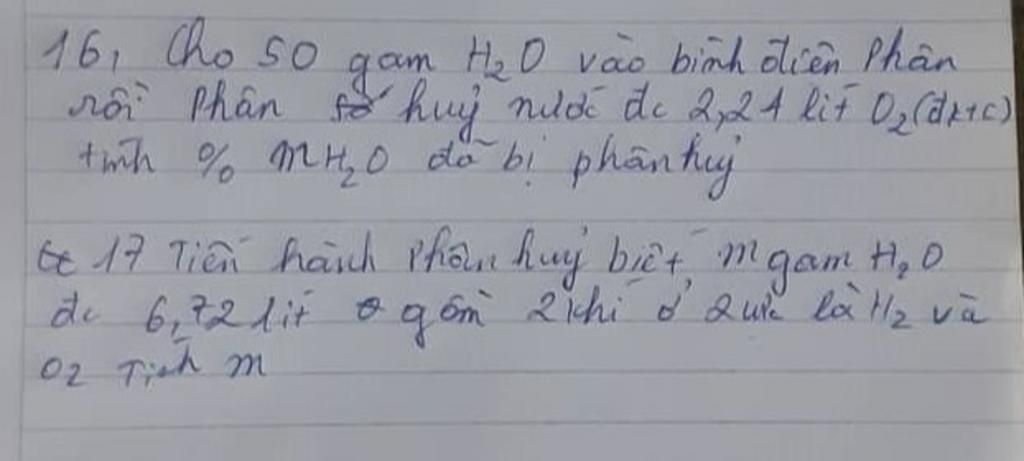 16, Cho 50 gam H₂O vào bình điên Phân
rồi Phân huỷ nước đc 2,24 lit O₂(đktc)
tính % mH₂O đã bị phân huỷ
17 Tiến hành Phân huỷ biết m gam H₂O
đc 6,72 lit gồm 2 khí ở 2 cực là H₂ và
O₂ Tính m